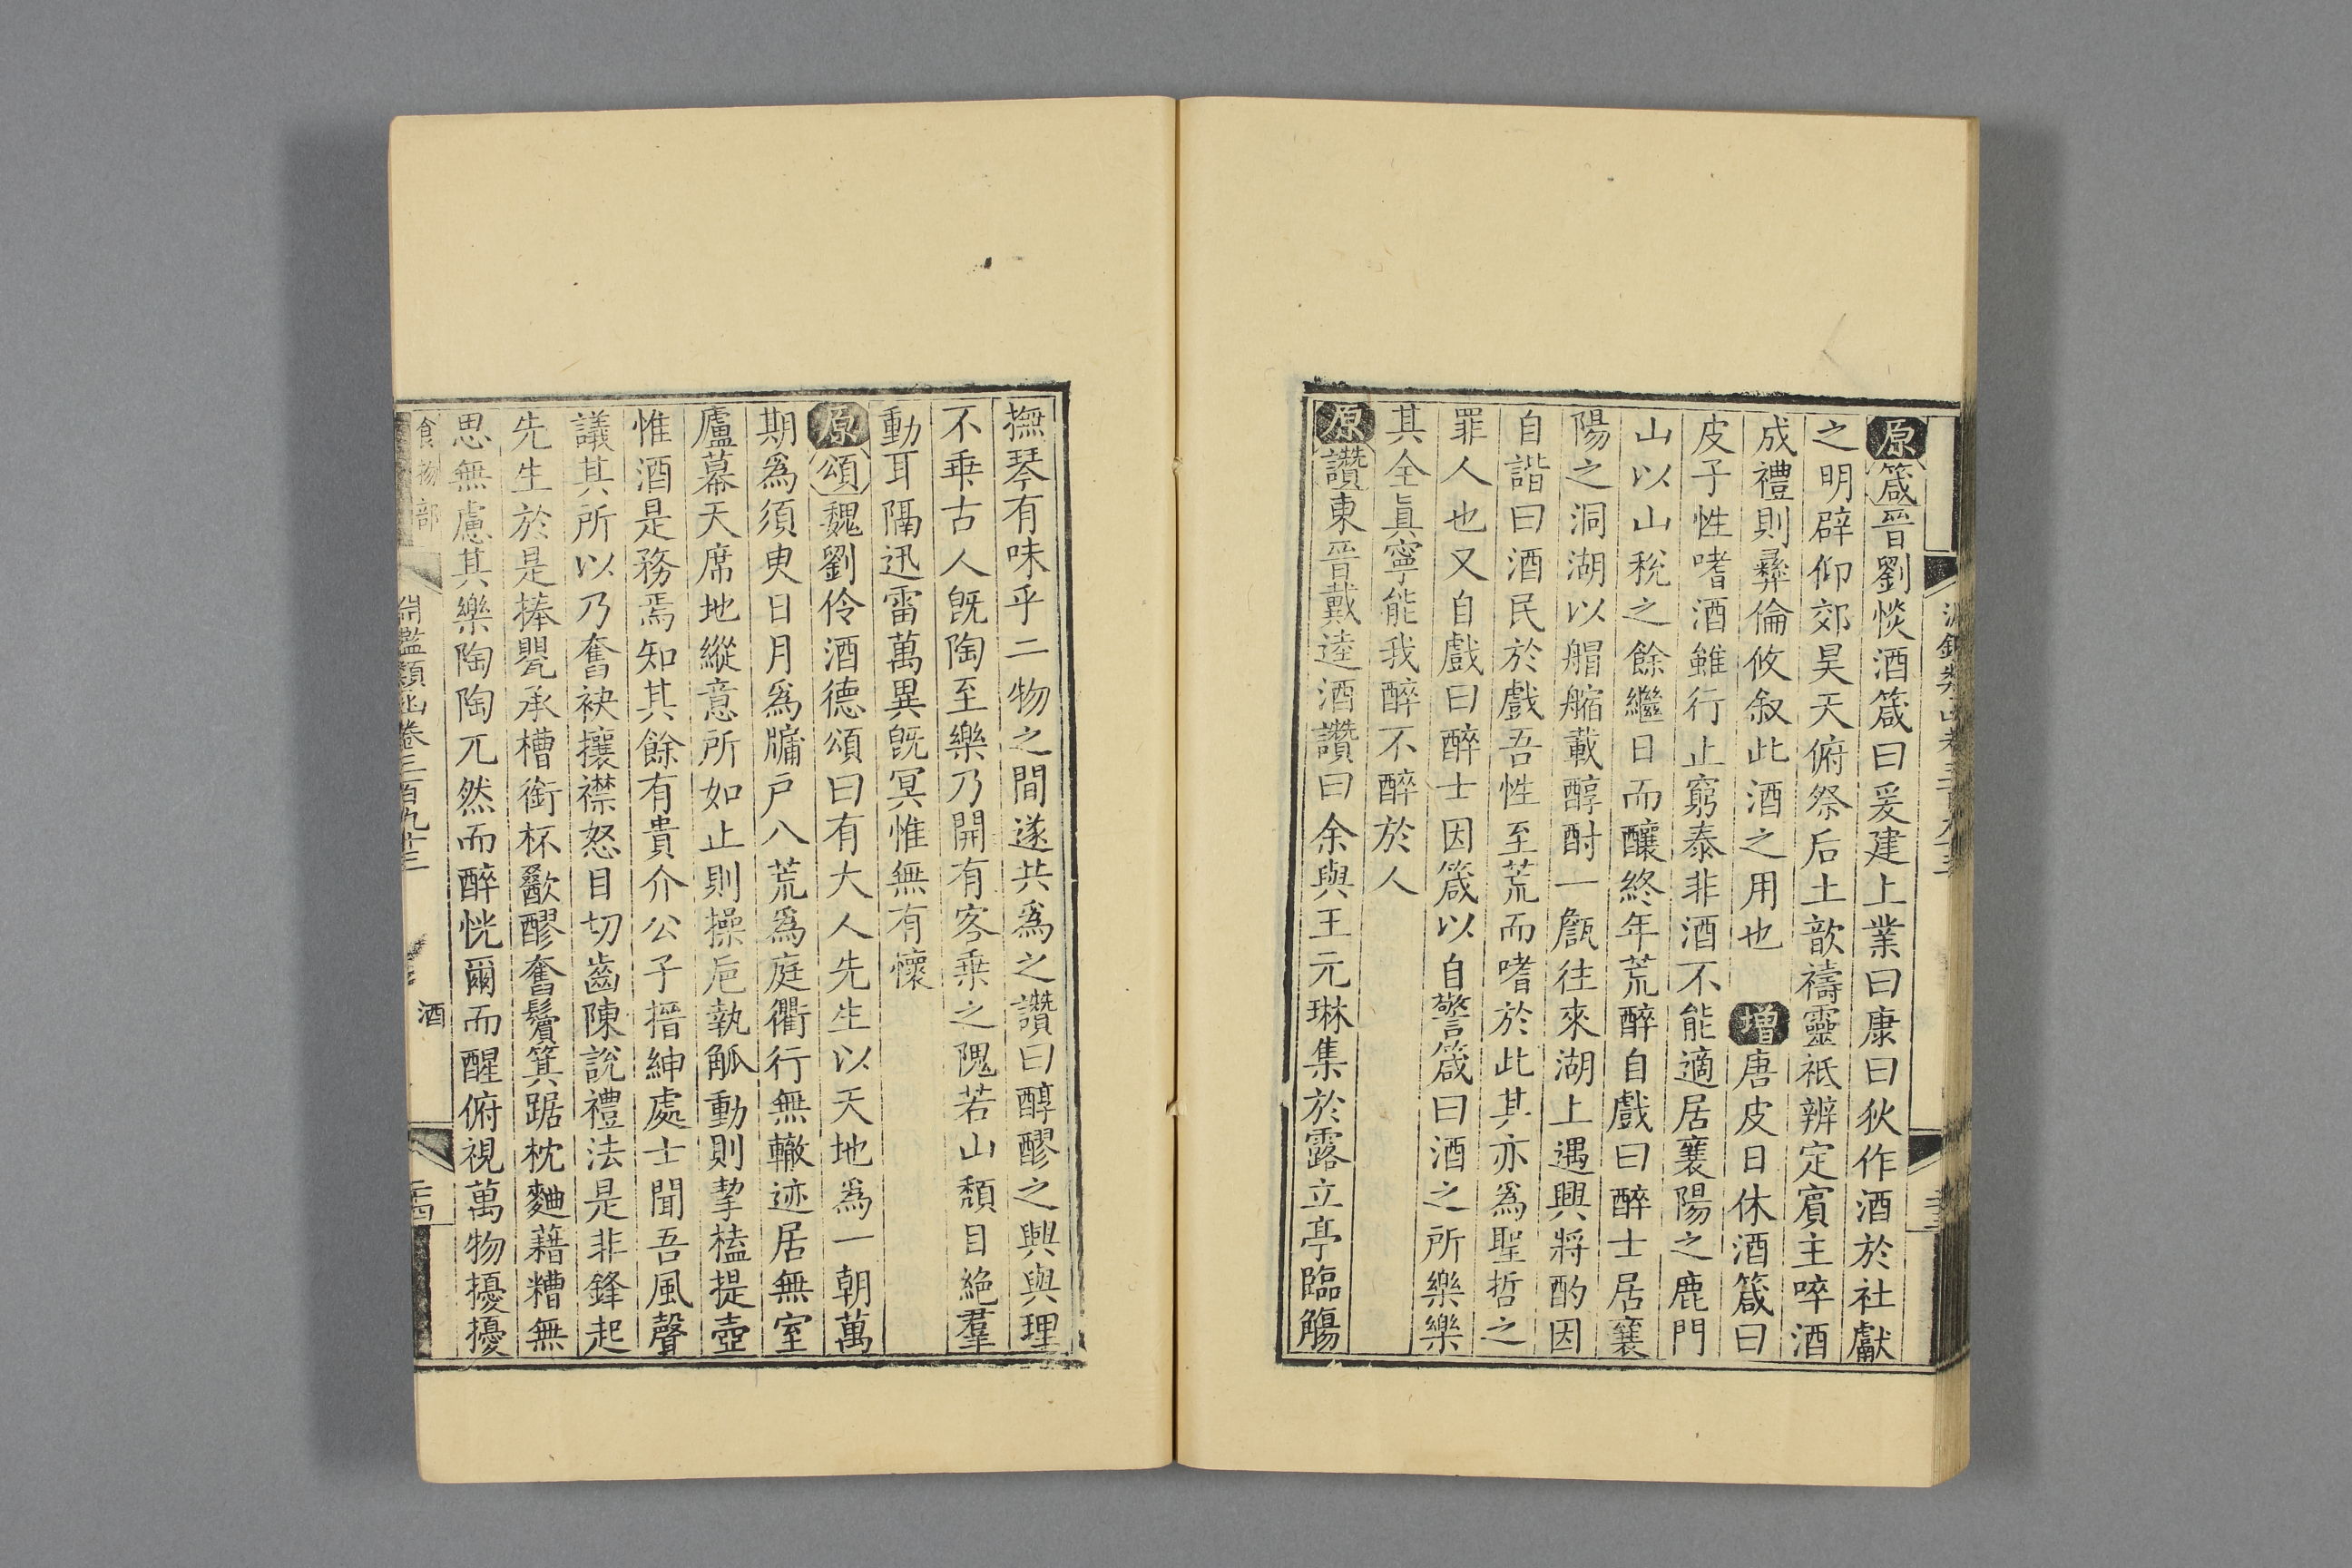 原箴晉劉惔酒箴曰爰建上業曰康曰狄作酒於社獻
之明辟仰郊昊天俯祭后土歆禱靈祇辨定賓主啐酒
成禮則彝倫攸叙此酒之用也 增唐皮日休酒箴曰
皮子性嗜酒雖行止窮泰非酒不能適居襄陽之鹿門
山以山稅之餘繼日而釀終年荒醉自戲曰醉士居襄
陽之洞湖以艒䑿載醇酎一甔往來湖上遇興將酌因
自諧曰酒民於戲吾性至荒而嗜於此其亦爲聖哲之
罪人也又自戲曰醉士因箴以自警箴曰酒之所樂樂
其全眞寧能我醉不醉於人
原讚東晉戴逵酒讚曰余與王元琳集於露立亭臨觴
撫琴有味乎二物之間遂共爲之讚曰醇醪之興與理
不乗古人旣陶至樂乃開有客乗之隗若山頹目絶羣
動耳隔迅雷萬異旣冥惟無有懷
原頌魏劉伶酒德頌曰有大人先生以天地爲一朝萬
期爲須臾日月爲牖戶八荒爲庭衢行無轍迹居無室
廬幕天席地縱意所如止則操巵執觚動則挈榼提壺
惟酒是務焉知其餘有貴介公子搢紳處士聞吾風聲
議其所以乃奮袂攘襟怒目切齒陳說禮法是非鋒起
先生於是捧甖承槽銜杯歠醪奮鬢箕踞枕麯藉糟無
思無慮其樂陶陶兀然而醉恍爾而醒俯視萬物擾擾
食物部 淵鑑類函卷三百九十三 酒 二十四